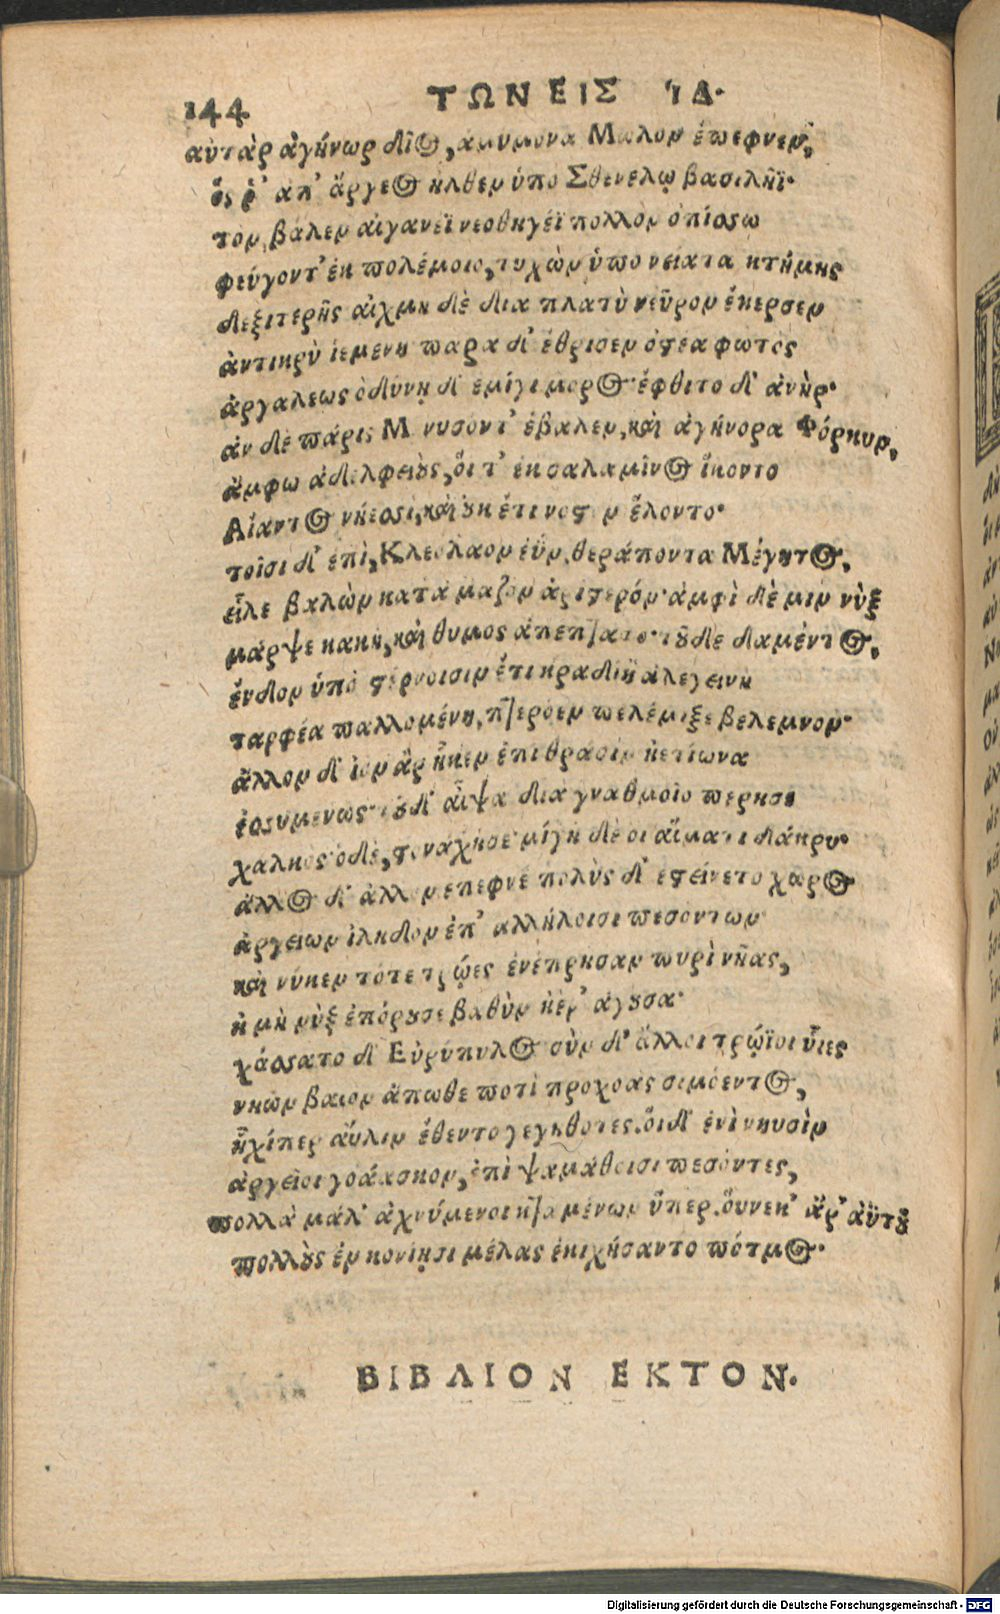 144
ΤΩΝ ΕΙΣ ἸΔ.
αὐτὰρ ἀγήνωρ δῖος, ἀμυμονα Μωλον ἐπεφνεν,
ὅς ῥ᾽ απ᾽ ἄργεος ἠλθεν ὑπο Σθενέλῳ βασιλῆϊ·
τὸν βάλεν αἰγανέϊ νεοθηγέϊ πολλὸν ὀπίσσω
φεύγοντ᾽ ἐκ πολέμοιο, τυχὼν ὑπο νείατα κτήμης
δεξιτερῆς αἰχμη δὲ δια πλατὺ νεῦρον ἔκερσεν
ἀντικρὺ ἱεμενη παρα δ᾽ ἔθρισεν ὀστέα φωτὸς
ἀργαλεως ὀδύνῃ δ᾽ ἐμίγι μορος· ἔφθιτο δ᾽ ἀνήρ·
ἀν δὲ πάρις Μ νυσόντ᾽ ἐβαλεν, καὶ ἀγήνορα Φόρκυν,
ἄμφω ἀδελφειοὺς, ὅι τ᾽ ἐκ σαλαμῖνος ἵκοντο
Αἴαντος νήεσσι, καὶ ουκ ἔτι νοστ ν ἕλοντο·
τοῖσι δ᾽ ἐπὶ, Κλεολαον ἐῢν, θεράποντα Μέγητος,
εἷλε βαλὼν κατα μαζον ἀριστερόν· ἀμφὶ δὲ μιν νὺξ
μάρψε κακη, καὶ θυμος ἀπεπτατο· τοῦ δε δαμέντος,
ἔνδον ὑπὸ στέρνοισιν ἔτι κραδίη ἀλεγεινη
ταρφέα παλλομένη, πτερόεν πελέμιξε βελεμνον·
ἄλλον δ᾽ ἰον ἂρ ἧκεν ἐπι θρασὶν ἠετίωνα
ἐσσυμενως· τοῦ δ᾽ αἶψα δια γναθμοῖο περησε
χαλκός· ὁ δὲ, στονάχησε· μίγη δὲ οι αἵματι δάκρυ·
ἄλλος δ᾽ ἀλλον επεφνε πολὺς δ᾽ εστείνετο χῶρος
ἀργείων ἰληδον ἐπ᾽ αλλήλοισι πεσοντων
καὶ νύκεν τότε τρῷες ἐνέπρησαν πυρὶ νῆας,
ἠ μὴ νὺξ ἐπόρουσε βαθὺν ἠέρ᾽ ἀγουσα·
χάσσατο δ᾽ Εὐρύπυλος σὺν δ᾽ ἄλλοι τρώϊοι υἷιες
νηῶν βαιον ἄπωθε ποτὶ προχοας σιμόεντος,
ἧχίπερ αὖλιν ἔθεντο γεγηθοτες. ὅι δ᾽ ἐνὶ νηυσὶν
ἀργεῖοι γοάασκον, ἐπὶ ψαμάθοισι πεσόντες,
πολλὰ μάλ᾽ ἀχνύμενοι κταμένων ὕπερ. ὅυνεκ᾽ ἄρ᾽ αὐτοῦ
πολλοὺς ἐν κονίῃσι μέλας ἐκιχήσαντο πότμος·
ΒΙΒΛΙΟΝ ΕΚΤΟΝ.
Digitalisierung gefördert durch die Deutsche Forschungsgemeinschaft - DFG